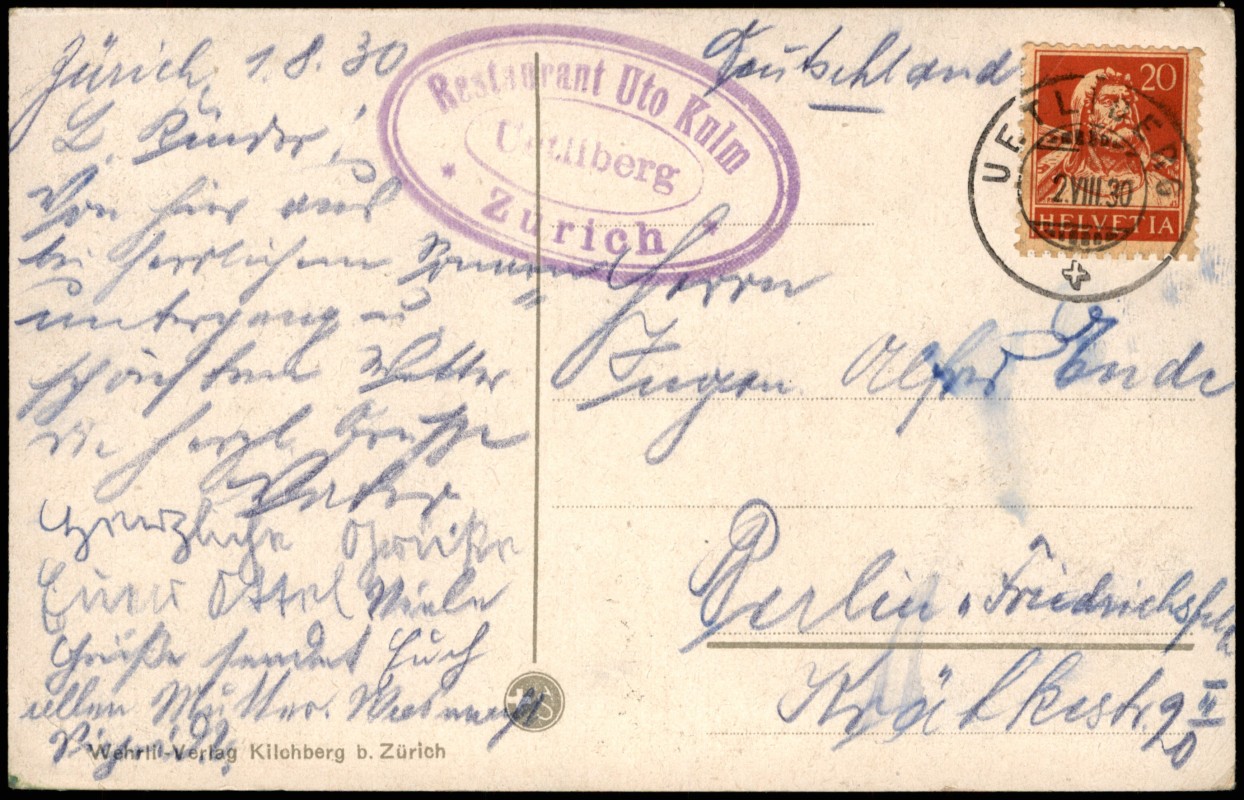 Zürich, 1.8.30
L. Kinder!
Von hier aus
bei herrlichem Sonnen=
untergang u.
schönstem Wetter
die herzl. Grüsse
Vater
Herzliche Grüße
Euer Ottel Viele
Grüße sendet Euch
allen Mutter.
Restaurant Uto Kulm
Uetliberg
* Zürich *
Deutschland
20
HELVETIA
UETLIBERG
2.VIII.30
Herrn
Ingen. Alfred Ende
Berlin-Friedrichsfelde
Krätkestr. 9 II
Wehrli-Verlag Kilchberg b. Zürich